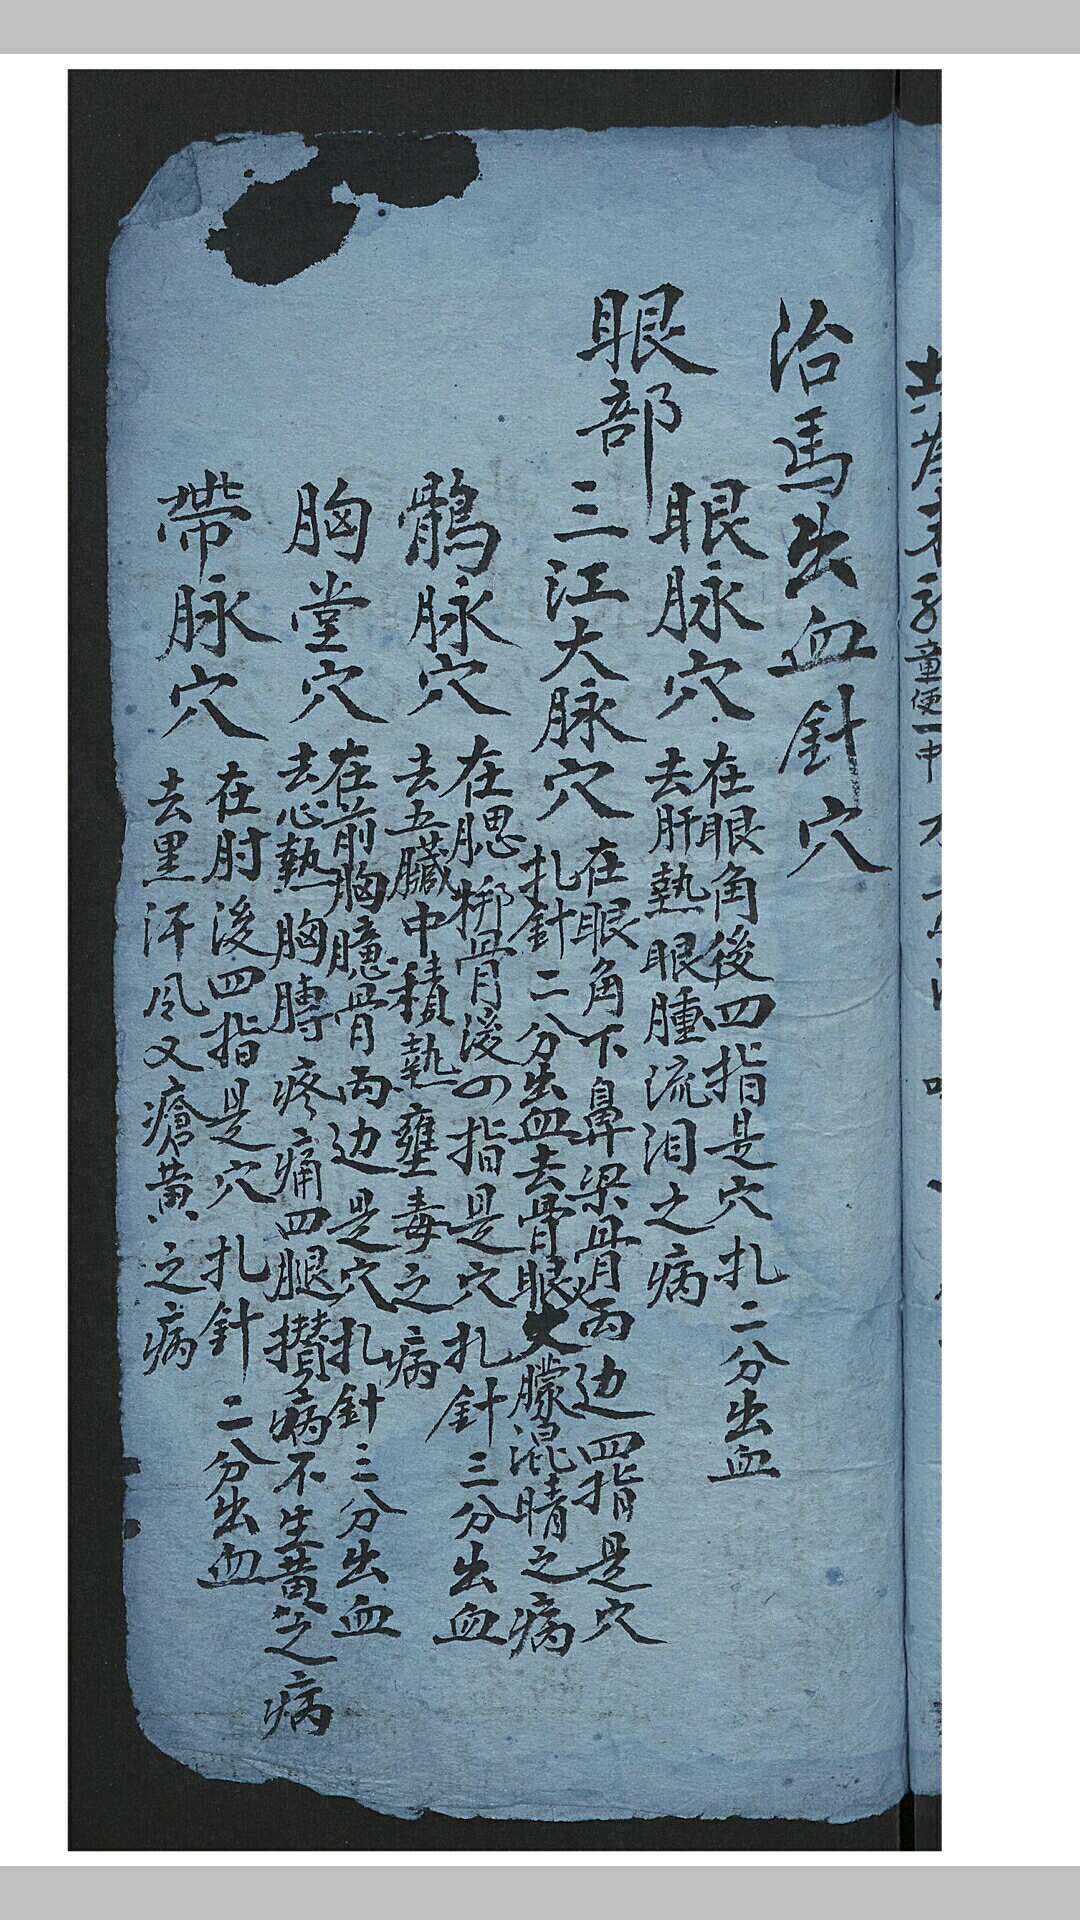 治馬出血針穴
眼部
眼脉穴
在眼角後四指是穴扎二分出血
去肝熱眼腫流泪之病
三江大脉穴
在眼角下鼻梁骨两边四指是穴
扎針二分出血去骨眼又朦混睛之病
鹘脉穴
在腮梆骨後四指是穴扎針三分出血
去五臟中積熱壅毒之病
胸堂穴
在前胸臆骨两边是穴扎針三分出血
去心熱胸膊疼痛四腿攢病不生黄之病
帶脉穴
在肘後四指是穴扎針二分出血
去黑汗风又瘡黄之病
童便一中